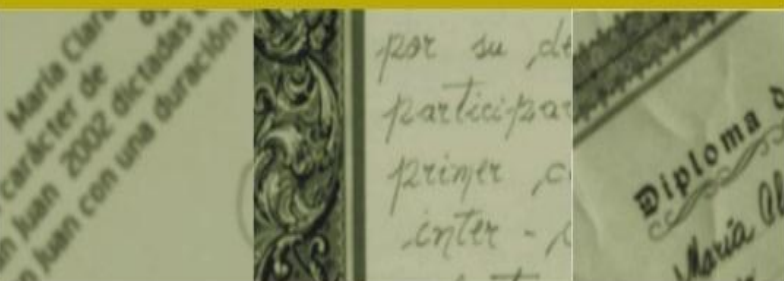 María Clara
carácter de
n Juan 2002 dictadas
n Juan con una duración
por su de
participar
primer c
inter -
Diploma d
María Al